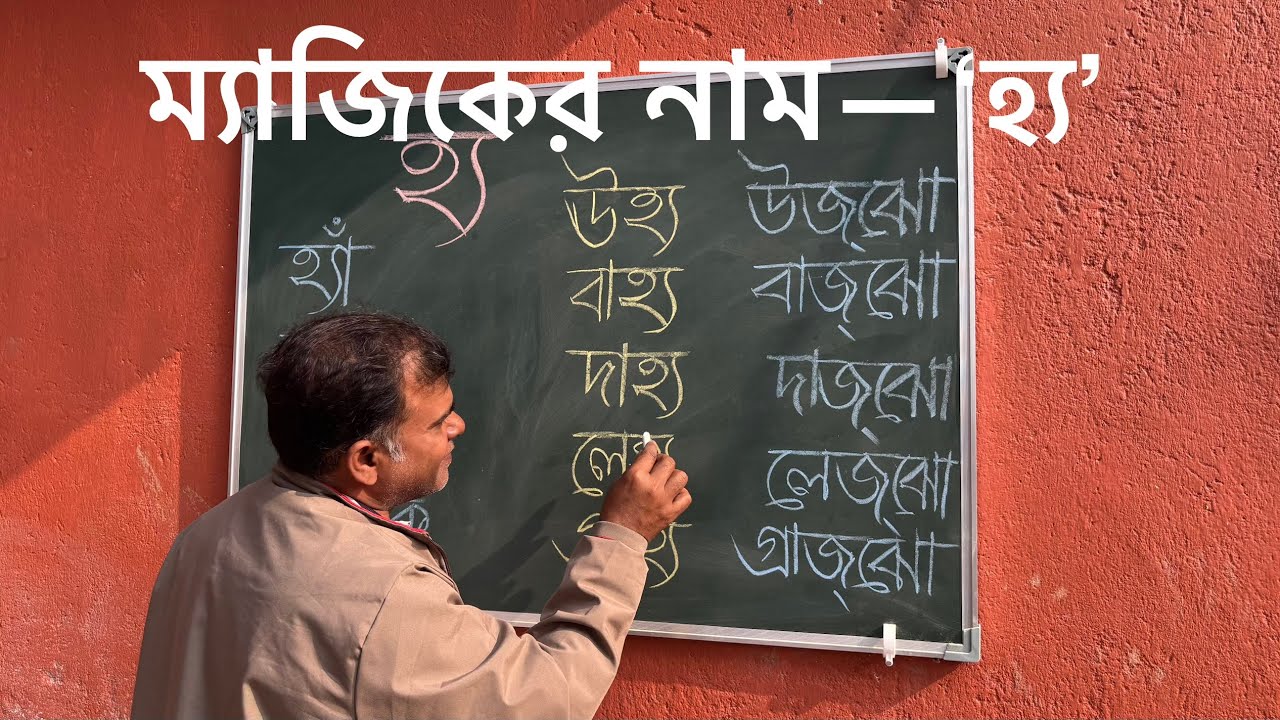 ম্যাজিকের নাম — ‘হ্য’
হ্য
হ্যাঁ
ঊহ্য উজ্‌ঝো
বাহ্য বাজ্‌ঝো
দাহ্য দাজ্‌ঝো
লেহ্য লেজ্‌ঝো
গ্রাজ্‌ঝো